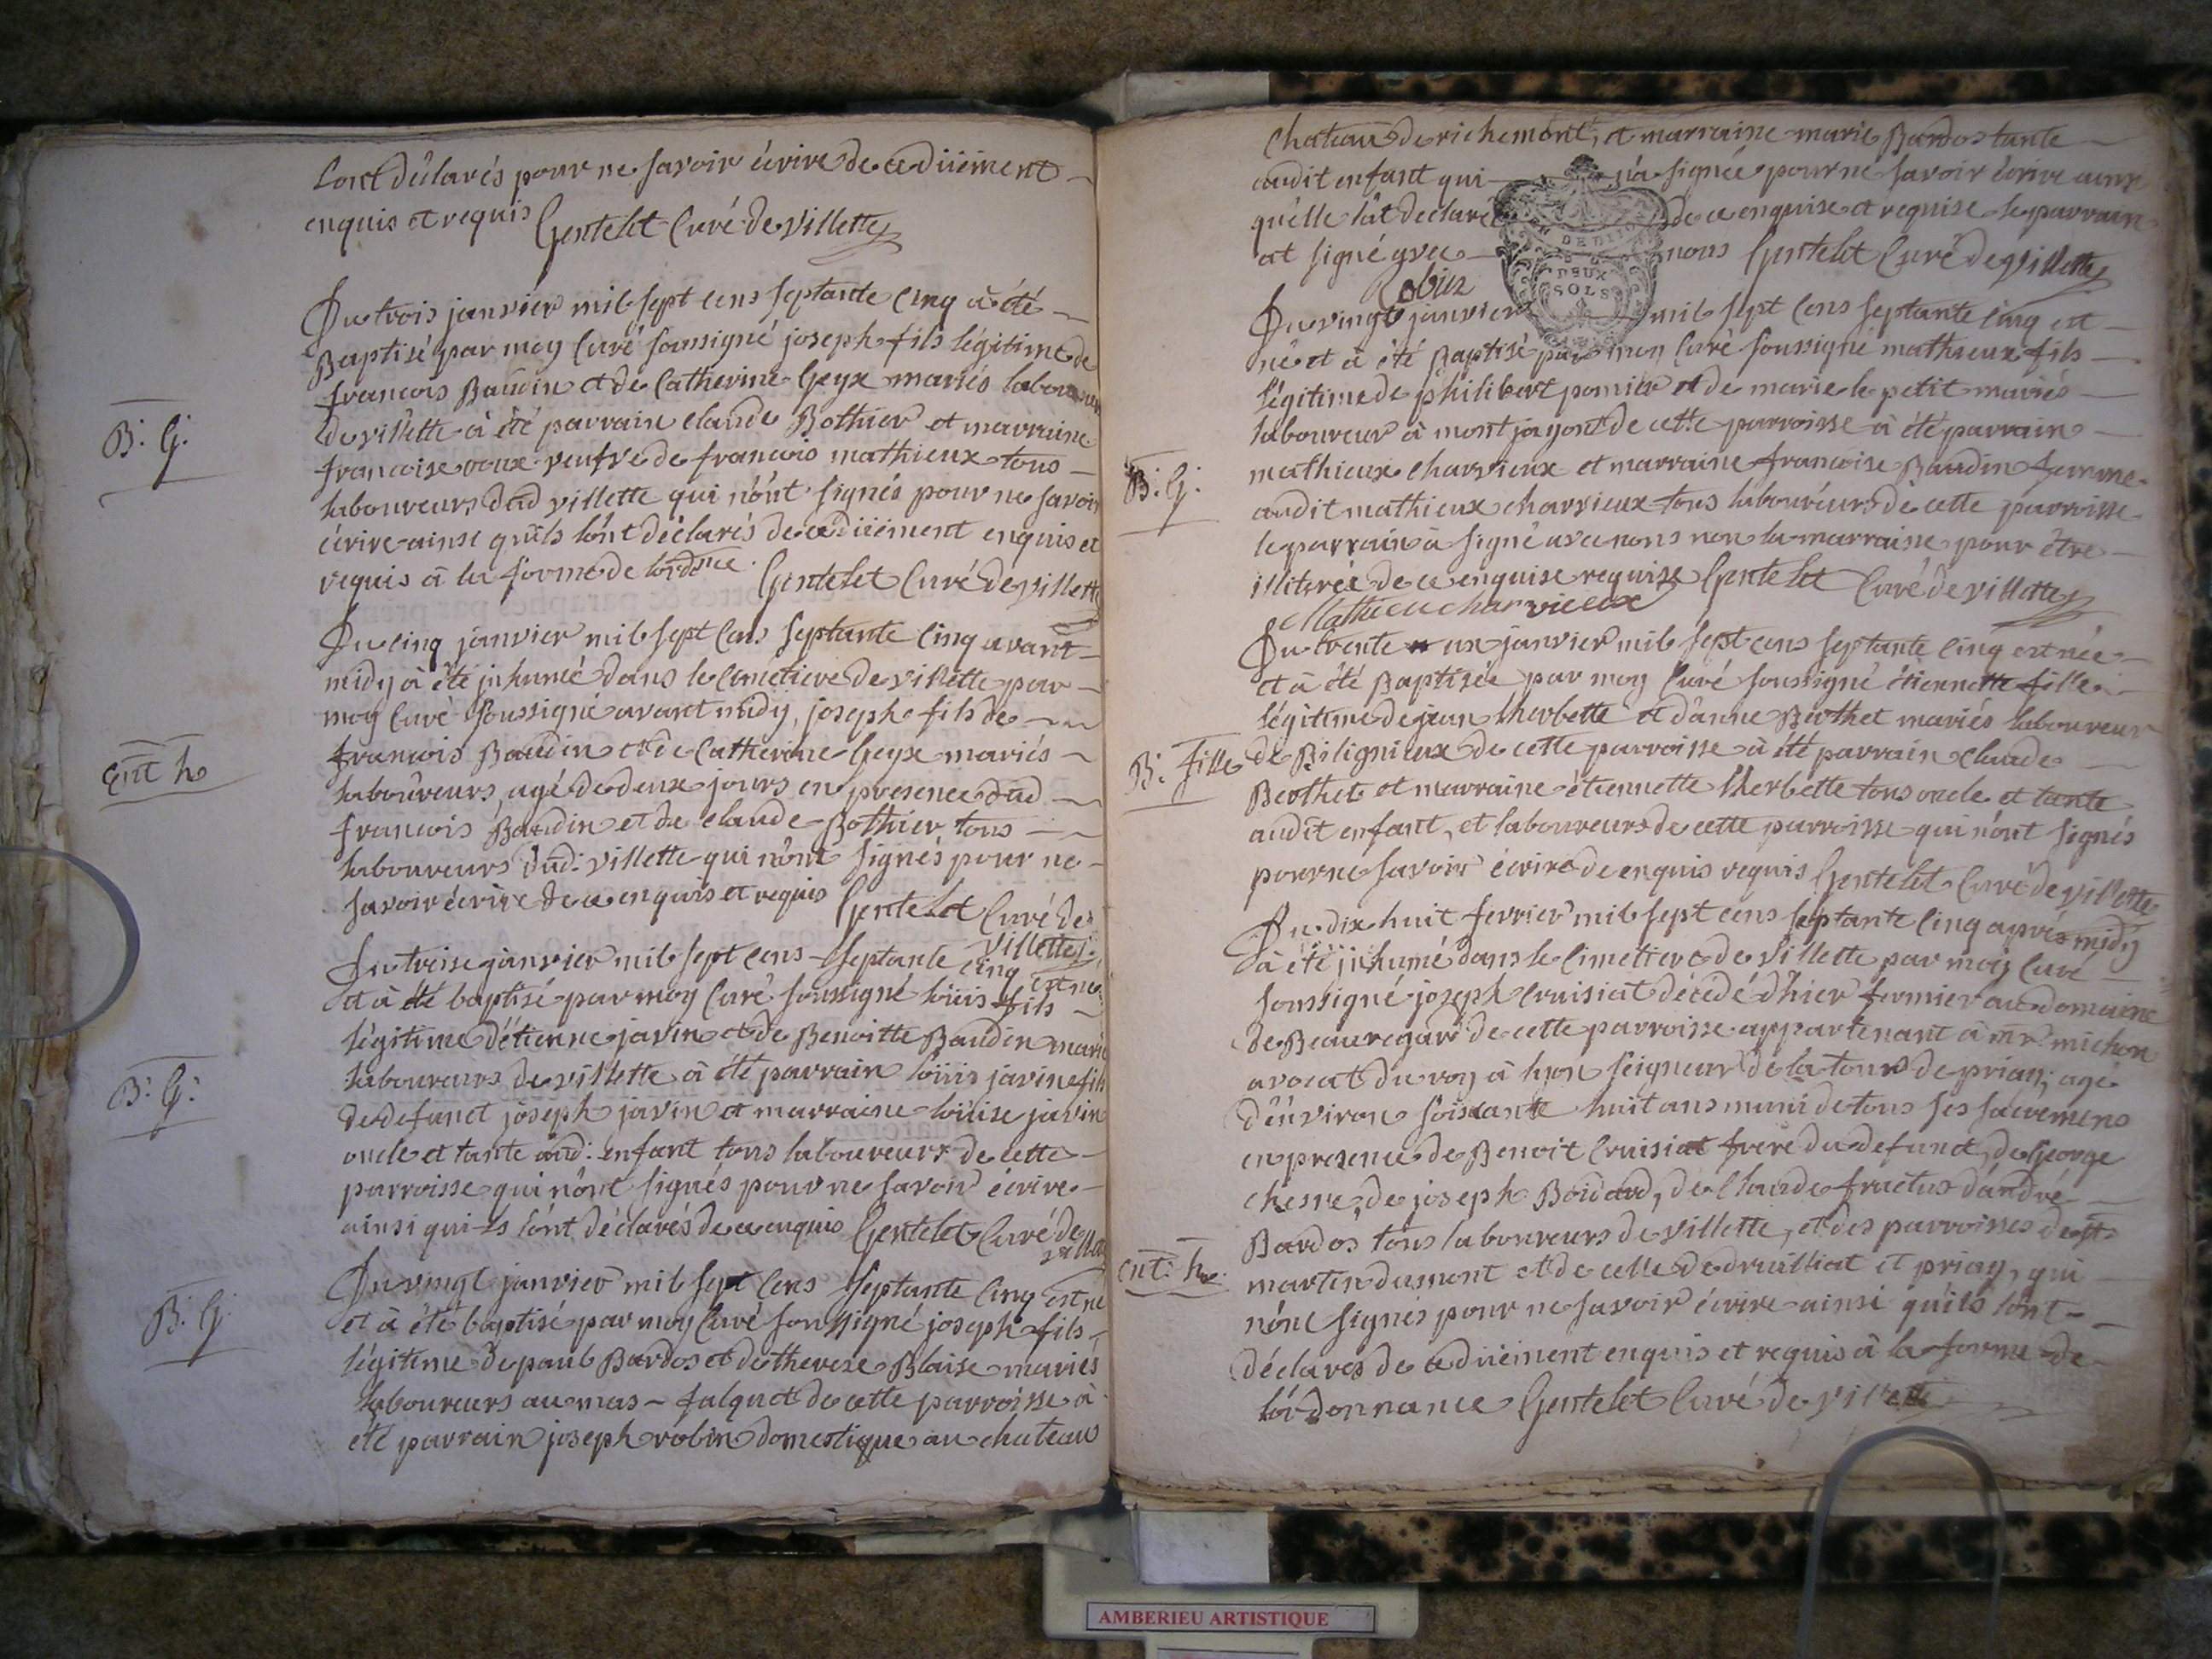 Lont déclarés pour ne savoir écrire de ce düement
enquis et requis Gentelet Curé de Villette
Du trois janvier mil sept cens septante cinq a été
Baptisé par moy Curé soussigné joseph fils légitime de
francois Baudin et de Catherine Geyx mariés laboureurs
de villette à été parrain claude Bothier et marraine
francoise roux veufve de francois mathieux tous
laboureurs dud villette qui n'ónt signés pour ne savoir
écrire ainsi qu'ils lónt déclarés de ce düement enquis et
requis à la forme de lordnce. Gentelet Curé de villette
B: G:
Du cinq janvier mil sept Cens septante cinq avant
midy à été inhumé dans le cimetiere de villette par
moy Curé soussigné avant midy, joseph fils de
francois Baudin et de Catherine Geyx mariés
laboureurs, agé de deux jours en presence dud
francois Baudin et de claude Bothier tous
laboureurs dud: villette qui n'ónt signés pour ne
savoir écrire de ce enquis et requis Gentelet Curé de
villette
Ent h
Du treise janvier mil sept cens septante cinq est né
et à été baptisé par moy Curé soussigné loüis fils
légitime d'étienne javin et de Benoitte Baudin mariés
laboureurs de villette à été parrain loüis javin fils
de defunct joseph javin et marraine loüise javin
oncle et tante aud: enfant tous laboureurs de cette
parroisse qui n'ónt signés pour ne savoir écrire
ainsi qui-ls lónt déclarés de ce enquis Gentelet Curé de
villette
B: G:
Du vingt janvier mil sept Cens septante cinq est né
et à été baptisé par moy Curé soussigné joseph fils
légitime de paul Bardos et de therese Blaise mariés
laboureurs au mas-falquet de cette parroisse à
été parrain joseph robin domestique au chateau
B: G:
Chateau de richemont, et marraine marie Bardos tante
audit enfant qui n'à signée pour ne savoir écrire ainsi
qu'elle lát declaré de ce enquise et requise le parrain
at signé avec nous Gentelet Curé de villette
Robin
DEUX
SOLS
Du vingt janvier mil sept Cens septante cinq est
né et à été Baptisé par moy Curé soussigné mathieux fils
légitime de philibert pomier et de marie le petit mariés
laboureur à mont jayont de cette parroisse à été parrain
mathieux charvieux et marraine francoise Baudin femme
audit mathieux charvieux tous laboureurs de cette parroisse
le parrain à signé avec nous non la marraine pour être
illiterée de ce enquise requise Gentelet Curé de villette
Mathieu charvieux
B: G:
Du trente un janvier mil sept cens septante cinq est née
et à été Baptisée par moy Curé soussigné étiennette fille
légitime de jean lherbette et d'anne Berthet mariés laboureur
de Bilignieux de cette parroisse à été parrain claude
Berthet et marraine étiennette lherbette tous oncle et tante
audit enfant, et laboureurs de cette parroisse qui n'ónt signés
pour ne savoir écrire de enquis requis Gentelet Curé de villette
B: fille
Du dix huit fevrier mil sept cens septante cinq aprés midy
à été inhumé dans le Cimetiere de villette par moy Curé
soussigné joseph Cruisiat décédé d'hier fermier au domaine
de Beauregard de cette parroisse appartenant à mr michon
avocat du roy à lyon seigneur de la tour de priay, agé
d'énviron soisxante huit ans muni de tous ses sacremens
en presence de Benoit Cruisiat frere du defunct, de George
chesne, de joseph Boidard, de Claude fructus dándré
Bardos tous laboureurs de villette, et des parroisses de st
martin dumont et de celle de druilliat et priay, qui
n'ónt signés pour ne savoir écrire ainsi qu'ils lónt
déclarés de ce düement enquis et requis à la forme de
lórdonnance Gentelet Curé de villette
Ent: h
AMBERIEU ARTISTIQUE